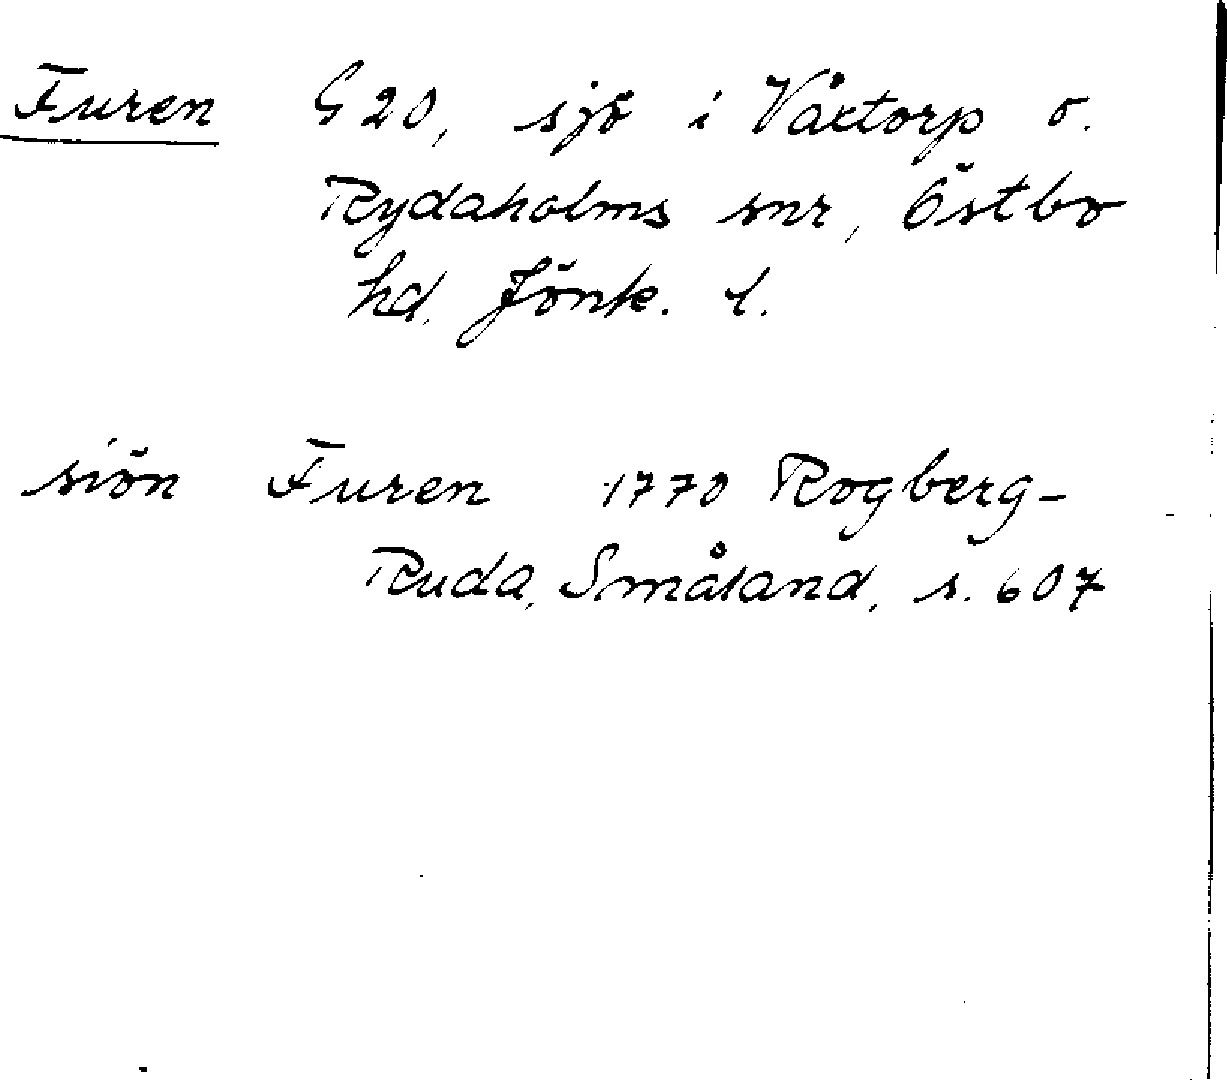 Furen G 20, sjö i Våxtorp o.
Rydaholms snr, Östbo
hd. Jönk. l.
siön Furen 1770 Rogberg-
Ruda, Småland, s. 607